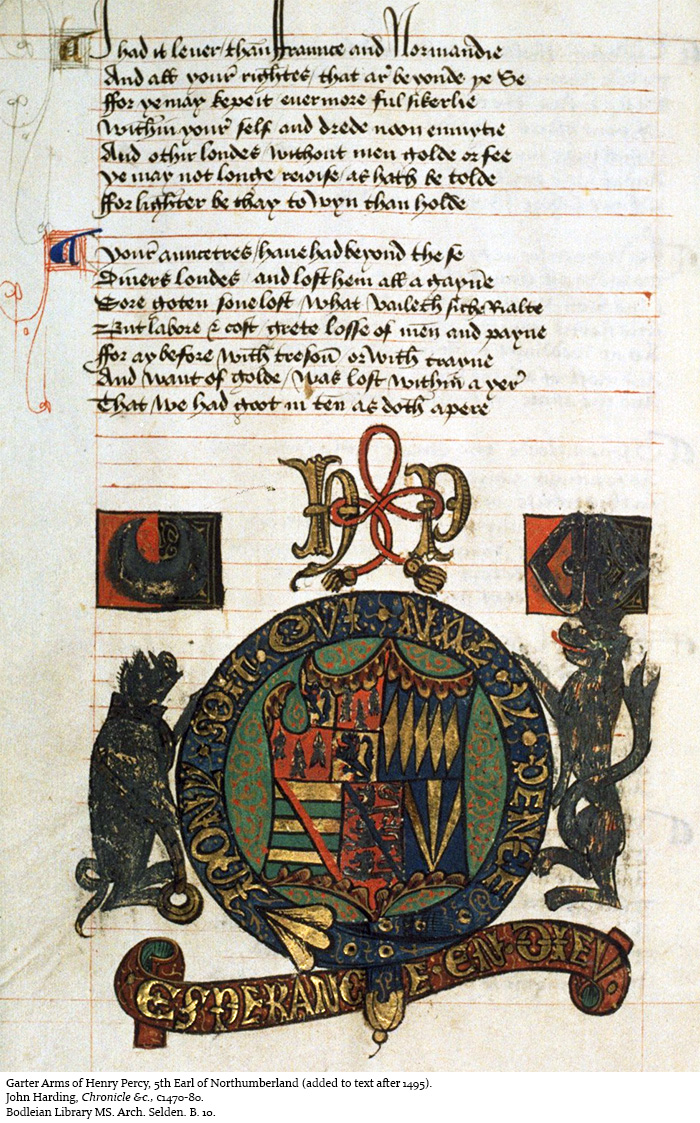 I had it lever / than Fraunce and Normandie
And all your rightes / that ar be yonde ye Se
ffor ye may kepe it evermore ful sikerlie
Within your self and drede noon enmytie
And othir londes / without men golde or fee
ye may not longe reioise / as hath be tolde
ffor lighter be thay to wyn than holde
your auncetres / have had beyond the se
Divers londes / and lost hem all a gayne
Sore goten sone lost / What vaileth siche Rialte
But labore & cost grete losse of men and payne
ffor ay before with treson or with trayne
And want of golde / was lost within a yer
That we had goot in ten as doth apere
h P
HONY · SOIT · QVI · MAL · Y · PENCE
ESPERANCE · EN · DIEV
Garter Arms of Henry Percy, 5th Earl of Northumberland (added to text after 1495).
John Harding, Chronicle &c., c1470-80.
Bodleian Library MS. Arch. Selden. B. 10.